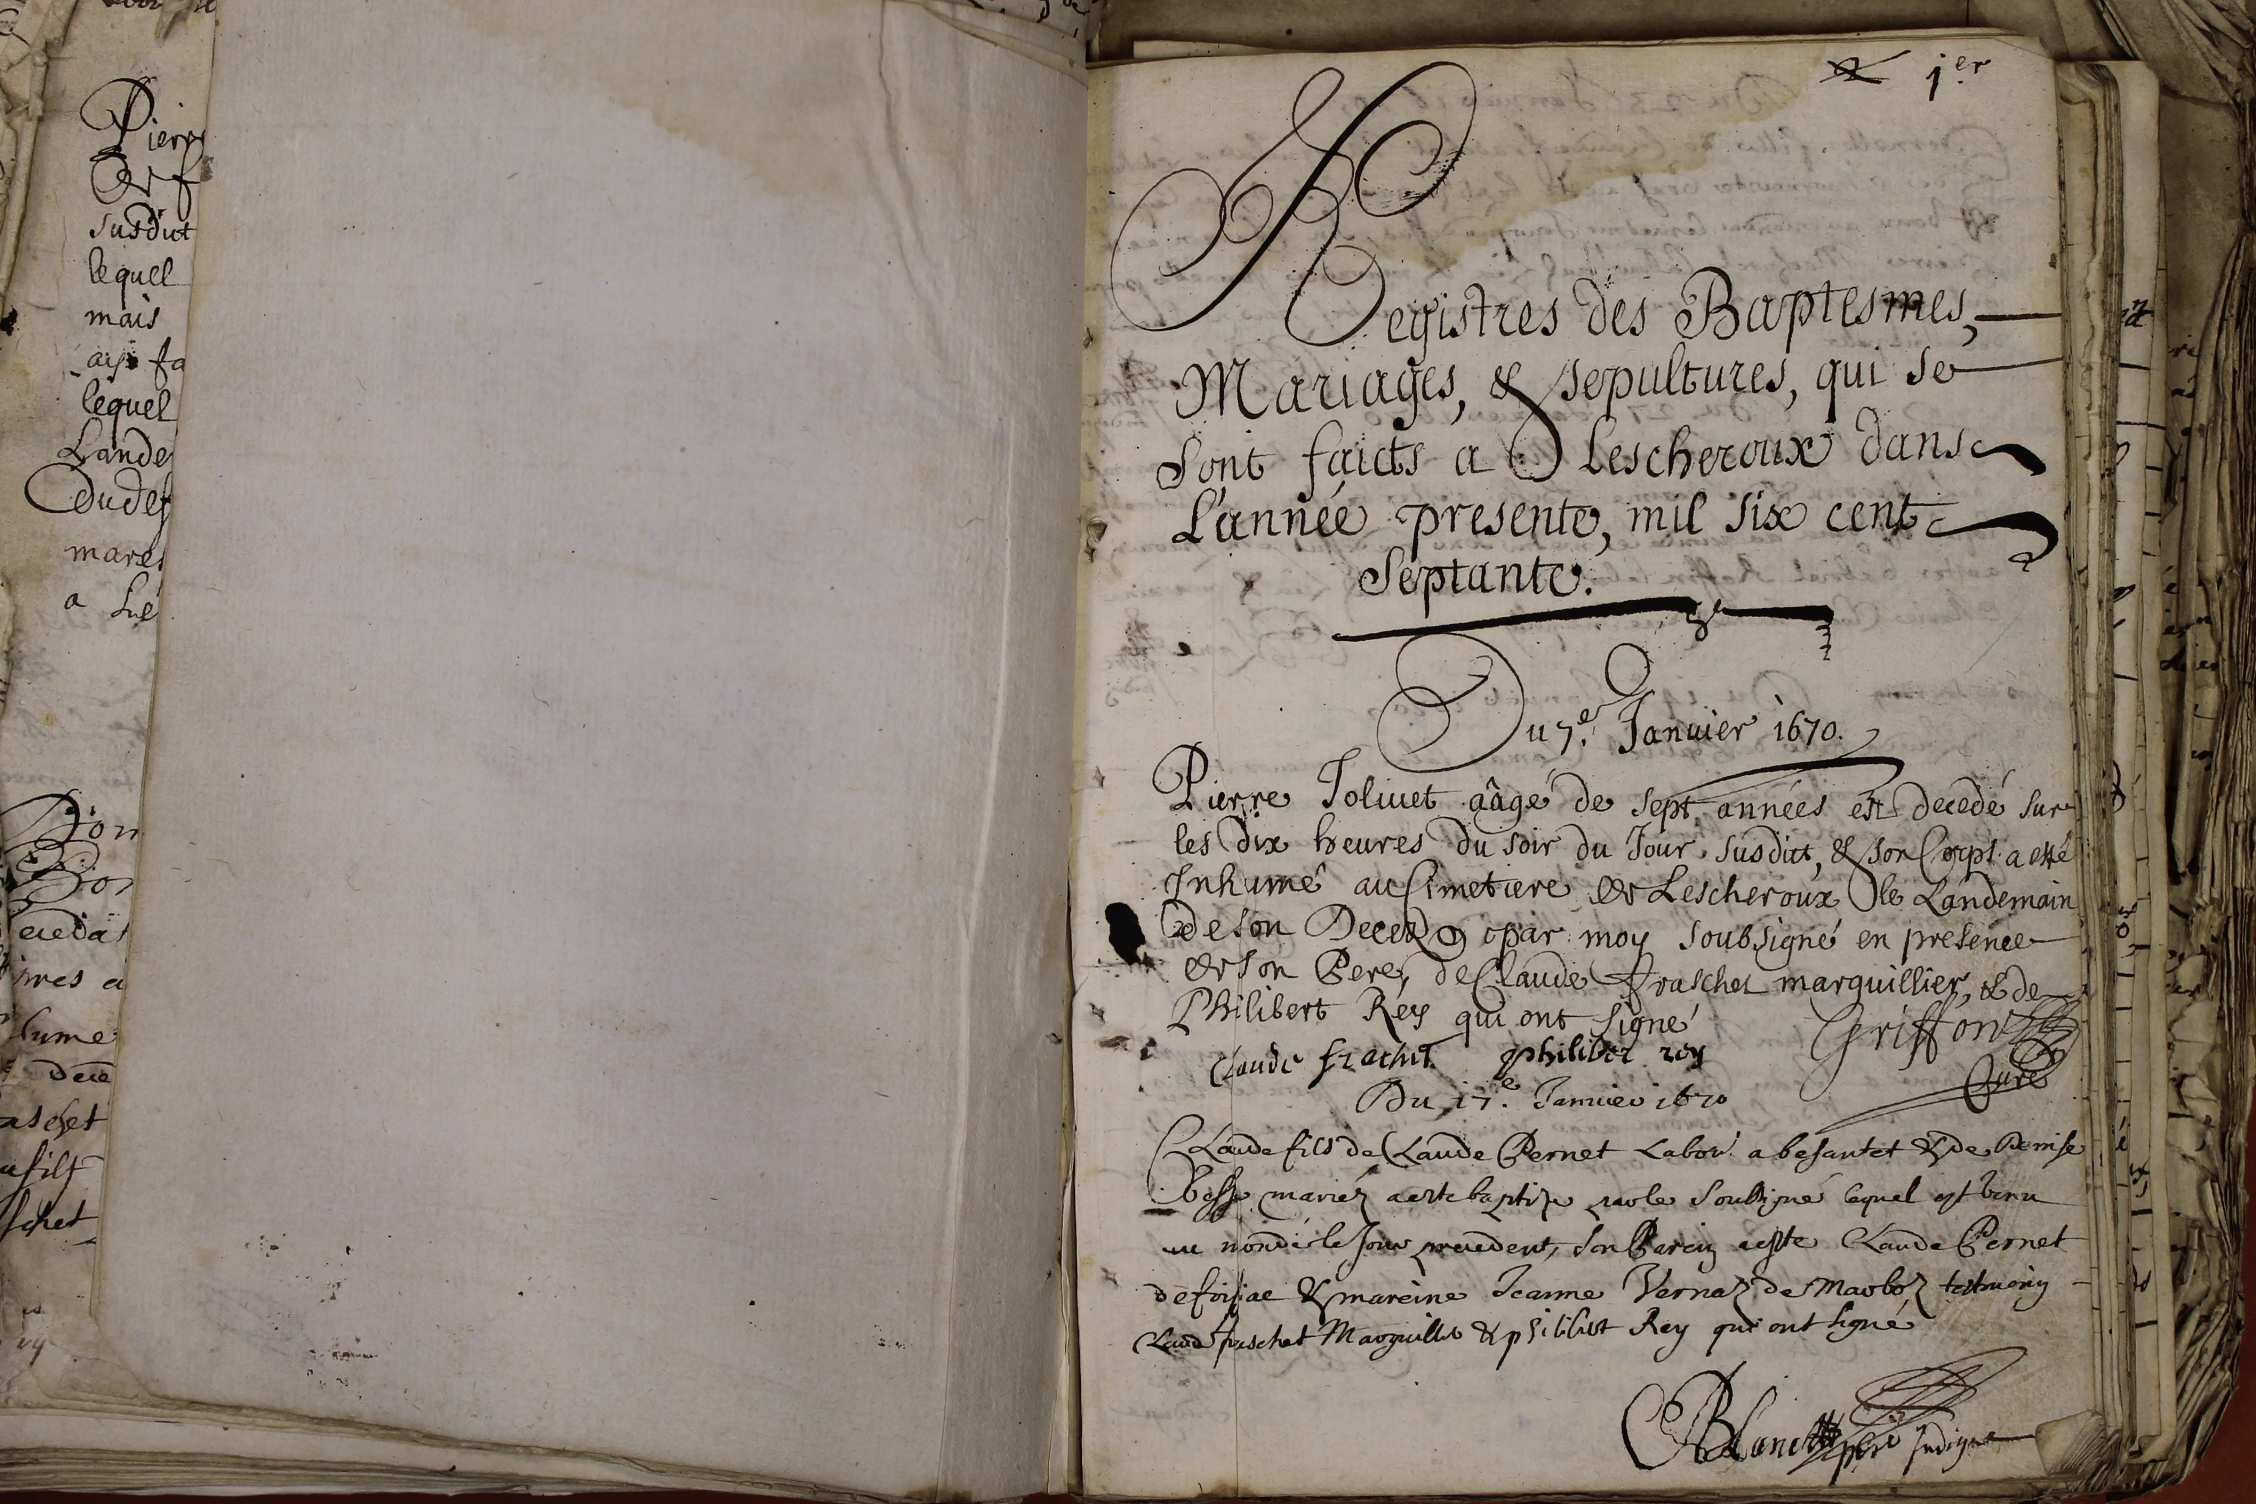 Pierr
susdict
lequel
mais
lequel
Lande
mares
a
1er
Registres des Baptesmes,
Mariages, & sepultures, qui se
sont faicts a Lescheroux dans
L'année presente, mil six cent
septante.
Du 7.e Januier 1670.
Pierre Joliuet aâgé de sept années est decedé sur
les dix heures du soir du Jour susdict, & son Corps a esté
Inhumé au Cimetiere de Lescheroux le Landemain
de son Deced par moy soubsigné en presence
de son Pere, de Claude fraschet marguillier, & de
Philibert Rey qui ont signé
Griffon
Claude frachet philiber rey
Curé
Du 17.e Januier 1670
Claude fils de Claude Pernet Labor. a besantet & de Denise
mariez a este baptize par le soubsigné lequel est venu
au monde le Jour precedent, son Parein a este Claude Pernet
de foissiac & mareine Jeanne Vernaz de Marboz tesmoin
Claude fraschet Marguillier & philibert Rey qui ont signé
Indigne